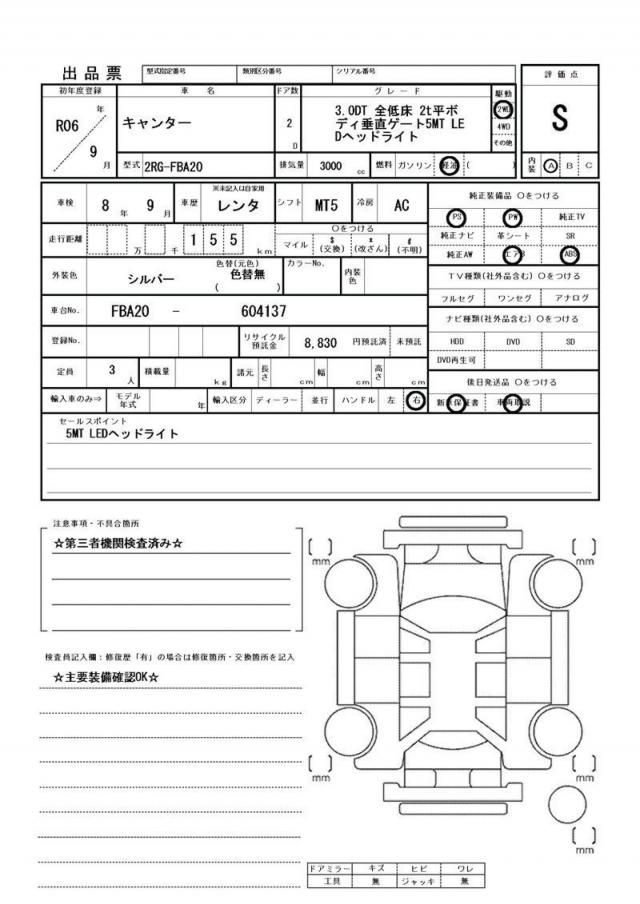 出品票
型式指定番号
類別区分番号
シリアル番号
評価点
初年度登録
車 名
ドア数
グレード
駆動
R06 年
9 月
キャンター
2 D
3.0DT 全低床 2t平ボ
ディ垂直ゲート5MT LE
Dヘッドライト
2WD
4WD
その他
S
型式 2RG-FBA20
排気量 3000 cc
燃料 ガソリン 軽油 ( )
内装 A B C
車検 8 年 9 月
車歴
※未記入は自家用
レンタ
シフト MT5
冷房 AC
純正装備品 〇をつける
PS PW 純正TV
純正ナビ 革シート SR
純正AW エアB ABS
走行距離 万 千 1 5 5 km
〇をつける
マイル $ (交換) * (改ざん) # (不明)
外装色 シルバー
色替(元色)
色替無
( )
カラーNo.
内装色
TV種類(社外品含む) 〇をつける
フルセグ ワンセグ アナログ
車台No. FBA20 - 604137
ナビ種類(社外品含む) 〇をつける
登録No.
リサイクル預託金 8,830 円預託済 未預託
HDD DVD SD
DVD再生可
定員 3 人
積載量 kg
諸元 長さ cm 幅 cm 高さ cm
後日発送品 〇をつける
輸入車のみ⇒ モデル年式 年
輸入区分 ディーラー 並行
ハンドル 左 右
新車保証書 車両取説
セールスポイント
5MT LEDヘッドライト
注意事項・不具合箇所
☆第三者機関検査済み☆
検査員記入欄：修復歴「有」の場合は修復箇所・交換箇所を記入
☆主要装備確認OK☆
[ ] mm
[ ] mm
[ ] mm
[ ] mm
[ ] mm
ドアミラー キズ ヒビ ワレ
工具 無 ジャッキ 無